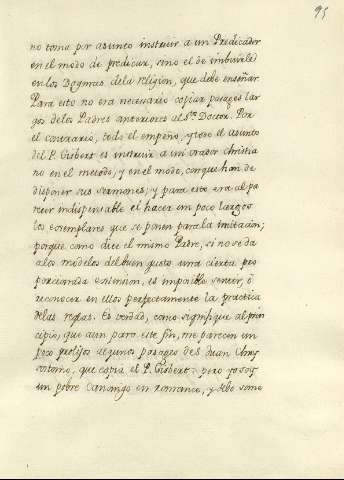 95
no toma por asunto instruir a un Predicador
en el modo de predicar, sino el de imbuirle
en los Dogmas dela religion, que debe enseñar.
Para esto no era necesario copiar pasages lar
gos de los Padres anteriores al Sto. Doctor. Por
el contrario, todo el empeño, y todo el asunto
del P. Gisbert es instruir a un orador christia
no en el metodo, y en el modo, con que han de
disponer sus sermones; y para esto era al pa
recer indispensable el hacer un poco largos
los exemplares que se ponen para la imitacion;
porque como dice el mismo Padre, si no se da
a los modelos del buen gusto una cierta pro
porcionada extension, es imposible sentir, ò
reconocer en ellos perfectamente la practica
delas reglas. Es verdad, como signifiquè al prin
cipio, que aun para este fin, me parecen un
poco prolijos algunos pasages de S. Juan Chry
sostomo, que copia el P. Gisbert: pero yo soy
un pobre Canonigo en romance, y debo some